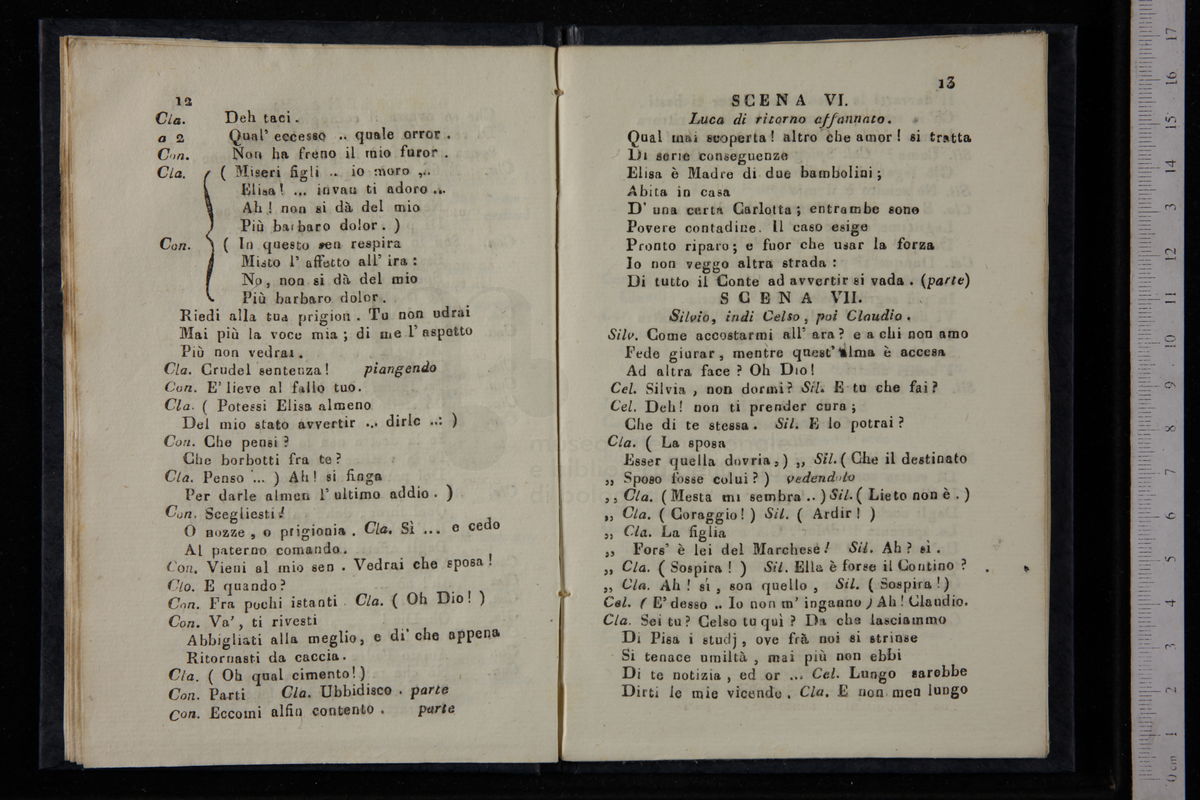 12
Cla. Deh taci.
a 2 Qual' eccesso .. quale orror .
Con. Non ha freno il mio furor .
Cla. ( Miseri figli .. io moro ...
Elisa! ... invan ti adoro ...
Ah! non si dà del mio
Più barbaro dolor . )
Con. ( In questo sen respira
Misto l' affetto all' ira :
No, non si dà del mio
Più barbaro dolor .
Riedi alla tua prigion . Tu non udrai
Mai più la voce mia ; di me l' aspetto
Più non vedrai .
Cla. Crudel sentenza! piangendo
Con. E' lieve al fallo tuo.
Cla. ( Potessi Elisa almeno
Del mio stato avvertir ... dirle ..: )
Con. Che pensi ?
Che borbotti fra te ?
Cla. Penso ... ) Ah! si finga
Per darle almen l' ultimo addio . )
Con. Scegliesti!
O nozze , o prigionia . Cla. Sì ... e cedo
Al paterno comando .
Con. Vieni al mio sen . Vedrai che sposa !
Clo. E quando ?
Con. Fra pochi istanti Cla. ( Oh Dio! )
Con. Va' , ti rivesti
Abbigliati alla meglio, e di' che appena
Ritornasti da caccia .
Cla. ( Oh qual cimento! )
Con. Parti Cla. Ubbidisco . parte
Con. Eccomi alfin contento . parte
13
SCENA VI.
Luca di ritorno affannato.
Qual mai scoperta! altro che amor! si tratta
Di serie conseguenze
Elisa è Madre di due bambolini ;
Abita in casa
D' una certa Carlotta ; entrambe sono
Povere contadine. Il caso esige
Pronto riparo ; e fuor che usar la forza
Io non veggo altra strada :
Di tutto il Conte ad avvertir si vada . (parte)
SCENA VII.
Silvio, indi Celso , poi Claudio .
Silv. Come accostarmi all' ara ? e a chi non amo
Fede giurar , mentre quest' alma è accesa
Ad altra face ? Oh Dio!
Cel. Silvia , non dormi ? Sil. E tu che fai ?
Cel. Deh! non ti prender cura ;
Che di te stessa . Sil. E lo potrai ?
Cla. ( La sposa
Esser quella dovria , ) ,, Sil. ( Che il destinato
,, Sposo fosse colui ? ) vedendolo
,, Cla. ( Mesta mi sembra .. ) Sil. ( Lieto non è . )
,, Cla. ( Coraggio! ) Sil. ( Ardir ! )
,, Cla. La figlia
,, Fors' è lei del Marchese! Sil. Ah ? sì .
,, Cla. ( Sospira ! ) Sil. Ella è forse il Contino ?
,, Cla. Ah ! sì , son quello , Sil. ( Sospira ! )
Cel. ( E' desso .. Io non m' inganno ) Ah! Claudio.
Cla. Sei tu ? Celso tu quì ? Da che lasciammo
Di Pisa i studj , ove frà noi si strinse
Si tenace umiltà , mai più non ebbi
Di te notizia , ed or ... Cel. Lungo sarebbe
Dirti le mie vicende . Cla. E non men lungo